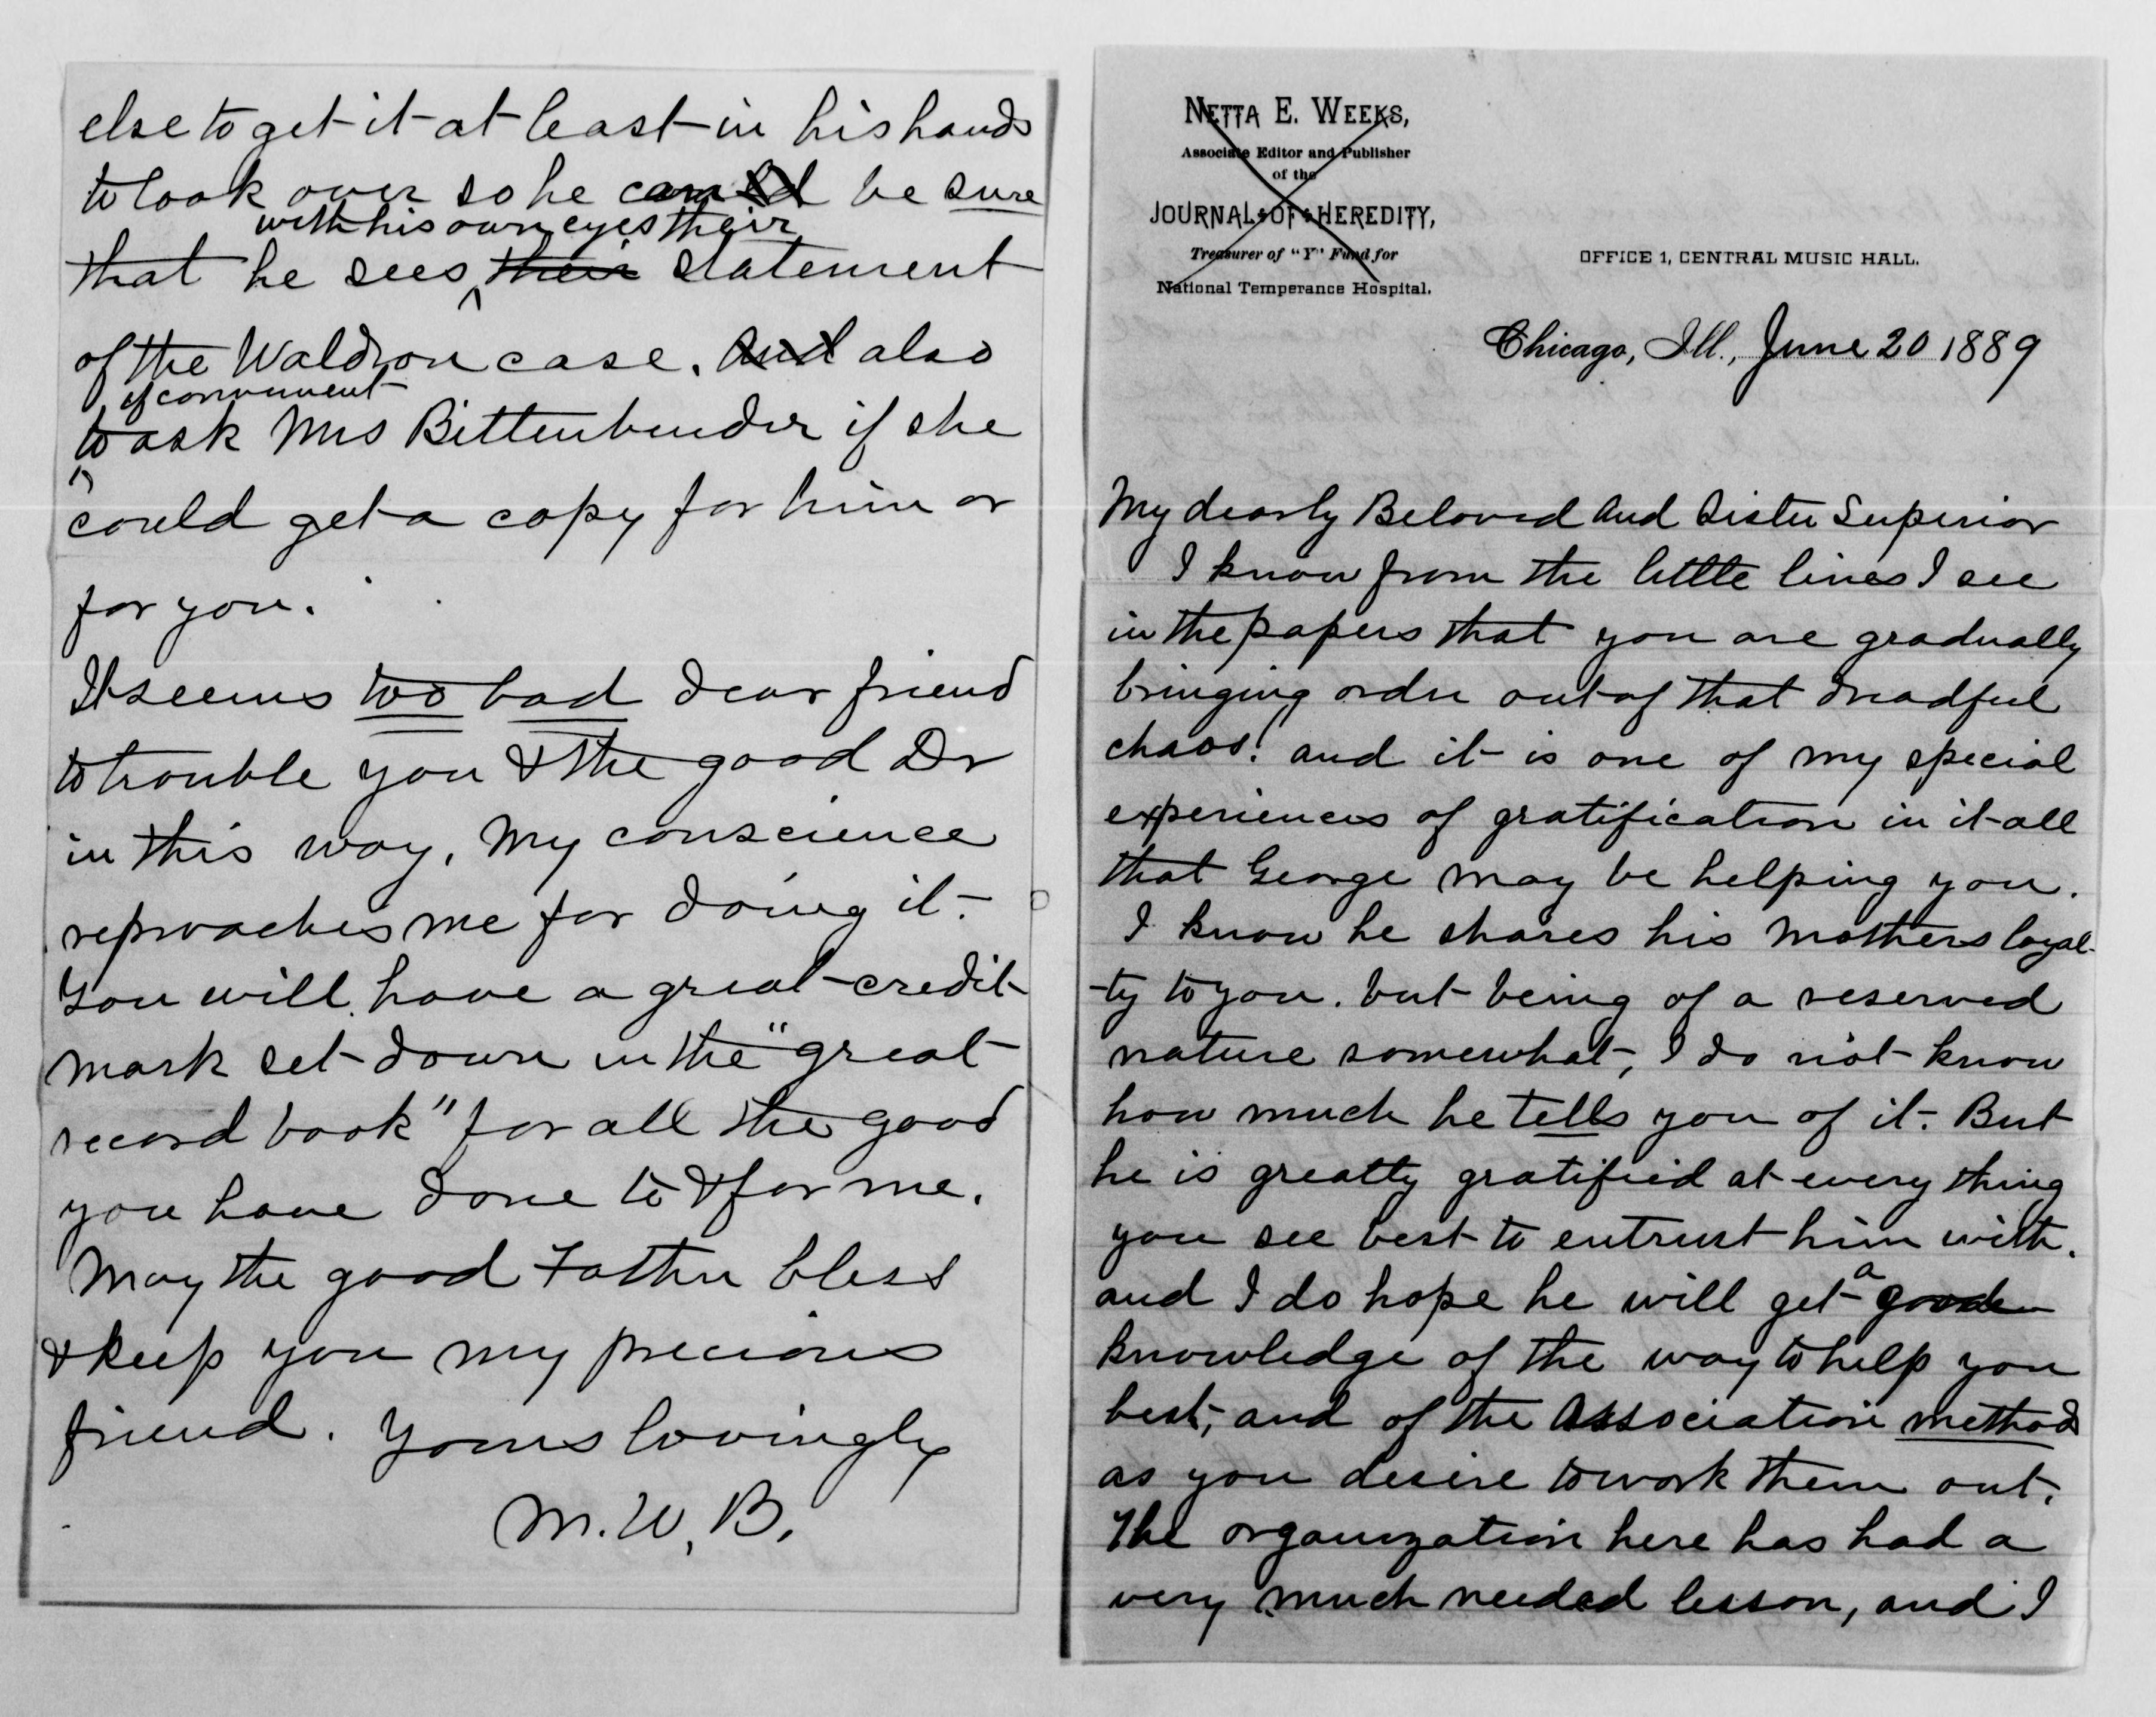 else to get it at least in his hands
to look over so he can be sure
with his own eyes their
that he sees their statement
of the Waldron case. And also
if convenient
to ask Mrs Bittenbender if she
could get a copy for him or
for you.
It seems too bad dear friend
to trouble you & the good Dr
in this way, My conscience
reproaches me for doing it.
You will have a great credit
mark set down in the "great
record book" for all the good
you have done to & for me.
May the good Father bless
& keep you my precious
friend. Yours lovingly
M. W. B.
NETTA E. WEEKS,
Associate Editor and Publisher
of the
JOURNAL OF HEREDITY,
Treasurer of "Y" Fund for
National Temperance Hospital.
OFFICE 1, CENTRAL MUSIC HALL.
Chicago, Ill., June 20 1889
My dearly Beloved and Sister Superior
I know from the little lines I see
in the papers that you are gradually
bringing order out of that dreadful
chaos! and it is one of my special
experiences of gratification in it all
that George may be helping you.
I know he shares his mothers loyal-
-ty to you. but being of a reserved
nature somewhat, I do not know
how much he tells you of it. But
he is greatly gratified at every thing
you see best to entrust him with.
and I do hope he will get a good
knowledge of the way to help you
best, and of the Association methods
as you desire to work them out.
The organization here has had a
very much needed lesson, and I